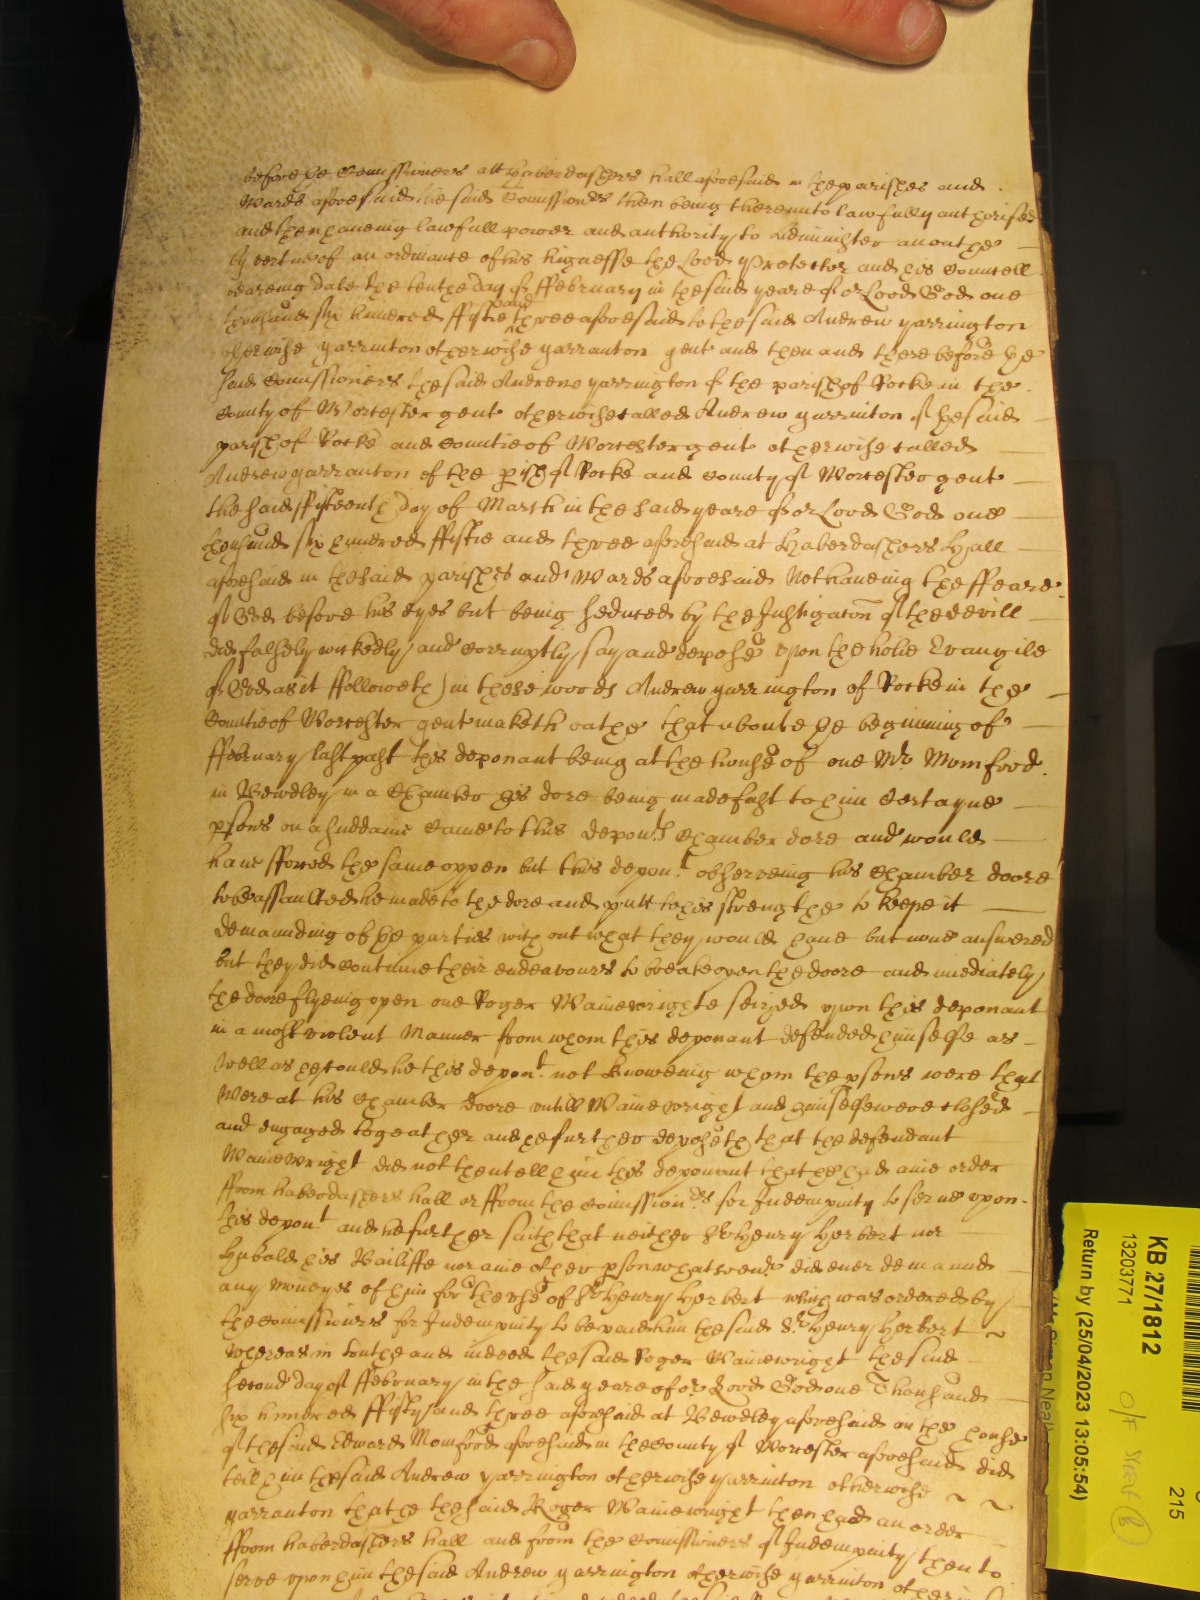 before ye Comissioners att Haberdashers hall aforesaid in the parishes and
Wards aforesaid the said Comissionrs then being thereunto lawfully authorised
and then haueing lawfull power and authority to Administer an oathe
by vertue of an ordinance of his highnesse the Lord Protector and his Councell
beareing date the tenth day of ffebruary in the said yeare of or Lord God one
thousand six hundred ffiftie and three aforesaid to the said Andrew yarrington
otherwise yarrinton otherwise yarranton gent and then and there before ye
said Comissioners the said Andrew yarrington of the parish of Rocke in the
County of Worcester gent otherwise called Andrew yarrinton of the said
parish of Rocke and Countie of Worcester gent otherwise called
Andrew yarranton of the pish of Rocke and County of Worcester gent
the said ffifteenth day of March in the said yeare of or Lord God one
thousand six hundred ffiftie and three aforesaid at Haberdashers Hall
aforesaid in the said parishes and Wards aforesaid Not haueing the ffeare
of God before his eyes but being seduced by the Instigacon of the devill
did falsely wickedly and corruptly say and depose vpon the holie Evangile
of God as it ffolloweth in these words Andrew yarrington of Rocke in the
Countie of Worcester gent maketh oathe that aboute ye beginning of
ffebruary last past this deponant being at the house of one Mr Momford
in Bewdley in a Chamber his dore being made fast to him Certayne
psons on a suddaine Came to this depont Chamber dore and would
haue fforced the same oppen but this depont observeing his Chamber doore
to be assaulted he made to the dore and putt to his strengthe to keepe it
demaunding of ye parties without what they would haue but none answered
but they did continue their endeavours to breake open the doore and imediately
the doore flyeing open one Roger Wainewrighte seized vpon this deponant
in a most violent Manner from whom this deponant defended himselfe as
well as he could he this depont not knoweing whom the psons were that
Were at his Chamber doore vntill Wainewright and himselfe were closed
and engaged togeather and he further deposeth that the defendant
Wainewright did not then tell him this deponant that he had anie order
ffrom haberdashers hall or ffrom the Comissionrs for Indempnity to serue vpon
this depont and he further saith that neither Sr Henry Herbert nor
Hubald his Bailiffe nor anie other pson whatsoeuer did euer demaund
any moneyes of him for the vse of Sr Henry Herbert which was ordered by
the Comissioners for Indempnity to be paid him the said Sr Henry Herbert
Whereas in truthe and indeed the said Roger Wainewright the said
second day of ffebruary in the said yeare of or Lord God one Thousand
six hundred ffifty and three aforesaid at Bewdley aforesaid in the house
of the said Edward Momford aforesaid in the County of Worcester aforesaid did
tell him the said Andrew yarrington otherwise yarrinton otherwise
yarranton that he the said Roger Wainewright then had an order
ffrom haberdashers hall and from the Comissioners of Indempnity then to
serve vpon him the said Andrew yarrington otherwise yarrinton otherwise
KB 27/1812
13203771
Return by (25/04/2023 13:05:54)
215